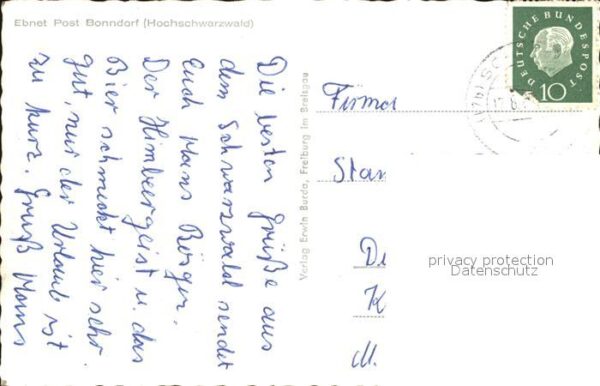 Ebnet Post Bonndorf (Hochschwarzwald)
Die besten Grüße aus
dem Schwarzwald sendet
Euch Hans Börger.
Der Himbeergeist u. das
Bier schmeckt hier sehr
gut, nur der Urlaub ist
zu kurz. Gruß Hans
Verlag Erwin Burda, Freiburg im Breisgau
Firma
Stan
D
K
M.
DEUTSCHE BUNDESPOST
10
privacy protection
Datenschutz